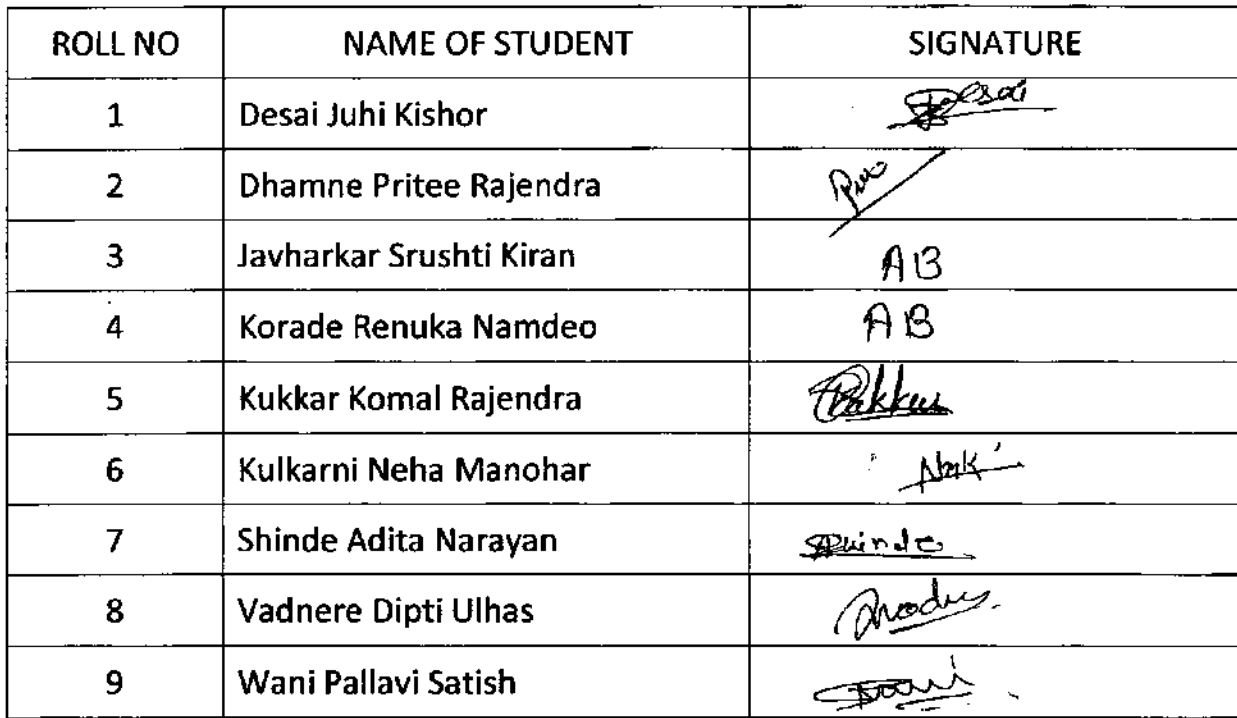 ROLL NO NAME OF STUDENT SIGNATURE
1 Desai Juhi Kishor Desai
2 Dhamne Pritee Rajendra
3 Javharkar Srushti Kiran AB
4 Korade Renuka Namdeo AB
5 Kukkar Komal Rajendra
6 Kulkarni Neha Manohar
7 Shinde Adita Narayan
8 Vadnere Dipti Ulhas
9 Wani Pallavi Satish